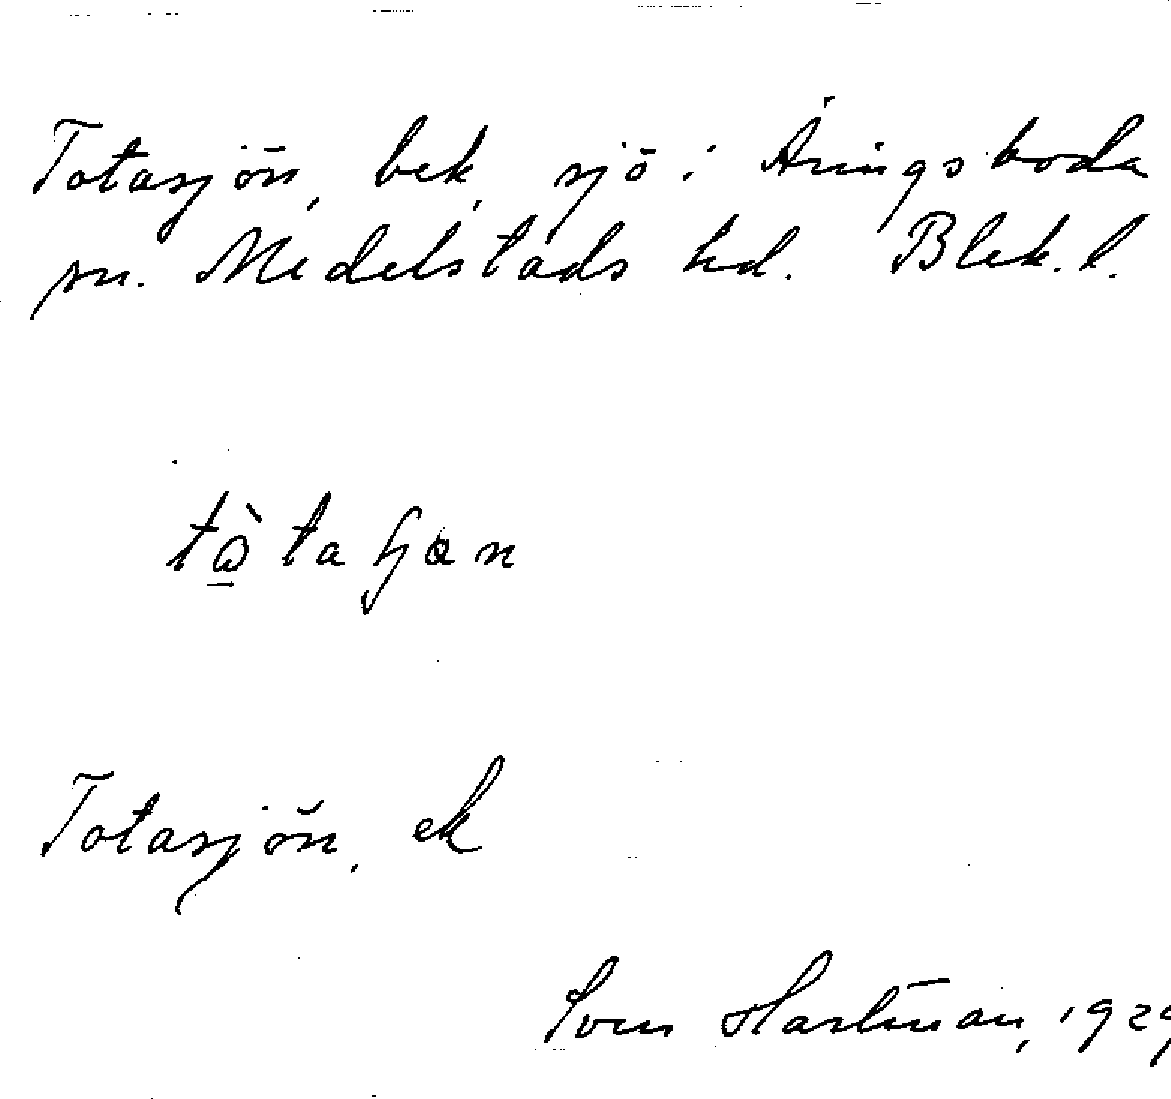 Totasjön, bek, sjö i Åringsboda
sn. Medelstads hd. Blek. l.
Totasjön, ek
Sven Hartman, 1929